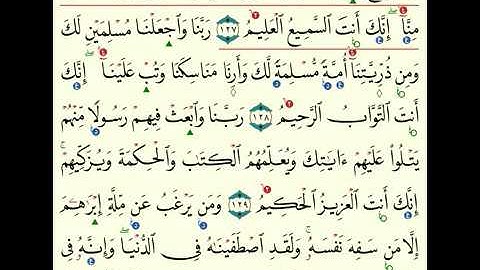 مِنَّآۖ إِنَّكَ أَنتَ ٱلسَّمِيعُ ٱلْعَلِيمُ ١٢٧ رَبَّنَا وَٱجْعَلْنَا مُسْلِمَيْنِ لَكَ
وَمِن ذُرِّيَّتِنَآ أُمَّةً مُّسْلِمَةً لَّكَ وَأَرِنَا مَنَاسِكَنَا وَتُبْ عَلَيْنَآۖ إِنَّكَ
أَنتَ ٱلتَّوَّابُ ٱلرَّحِيمُ ١٢٨ رَبَّنَا وَٱبْعَثْ فِيهِمْ رَسُولًا مِّنْهُمْ
يَتْلُوا۟ عَلَيْهِمْ ءَايَٰتِكَ وَيُعَلِّمُهُمُ ٱلْكِتَٰبَ وَٱلْحِكْمَةَ وَيُزَكِّيهِمْۚ
إِنَّكَ أَنتَ ٱلْعَزِيزُ ٱلْحَكِيمُ ١٢٩ وَمَن يَرْغَبُ عَن مِّلَّةِ إِبْرَٰهِـۧمَ
إِلَّا مَن سَفِهَ نَفْسَهُۥۚ وَلَقَدِ ٱصْطَفَيْنَٰهُ فِى ٱلدُّنْيَاۖ وَإِنَّهُۥ فِى